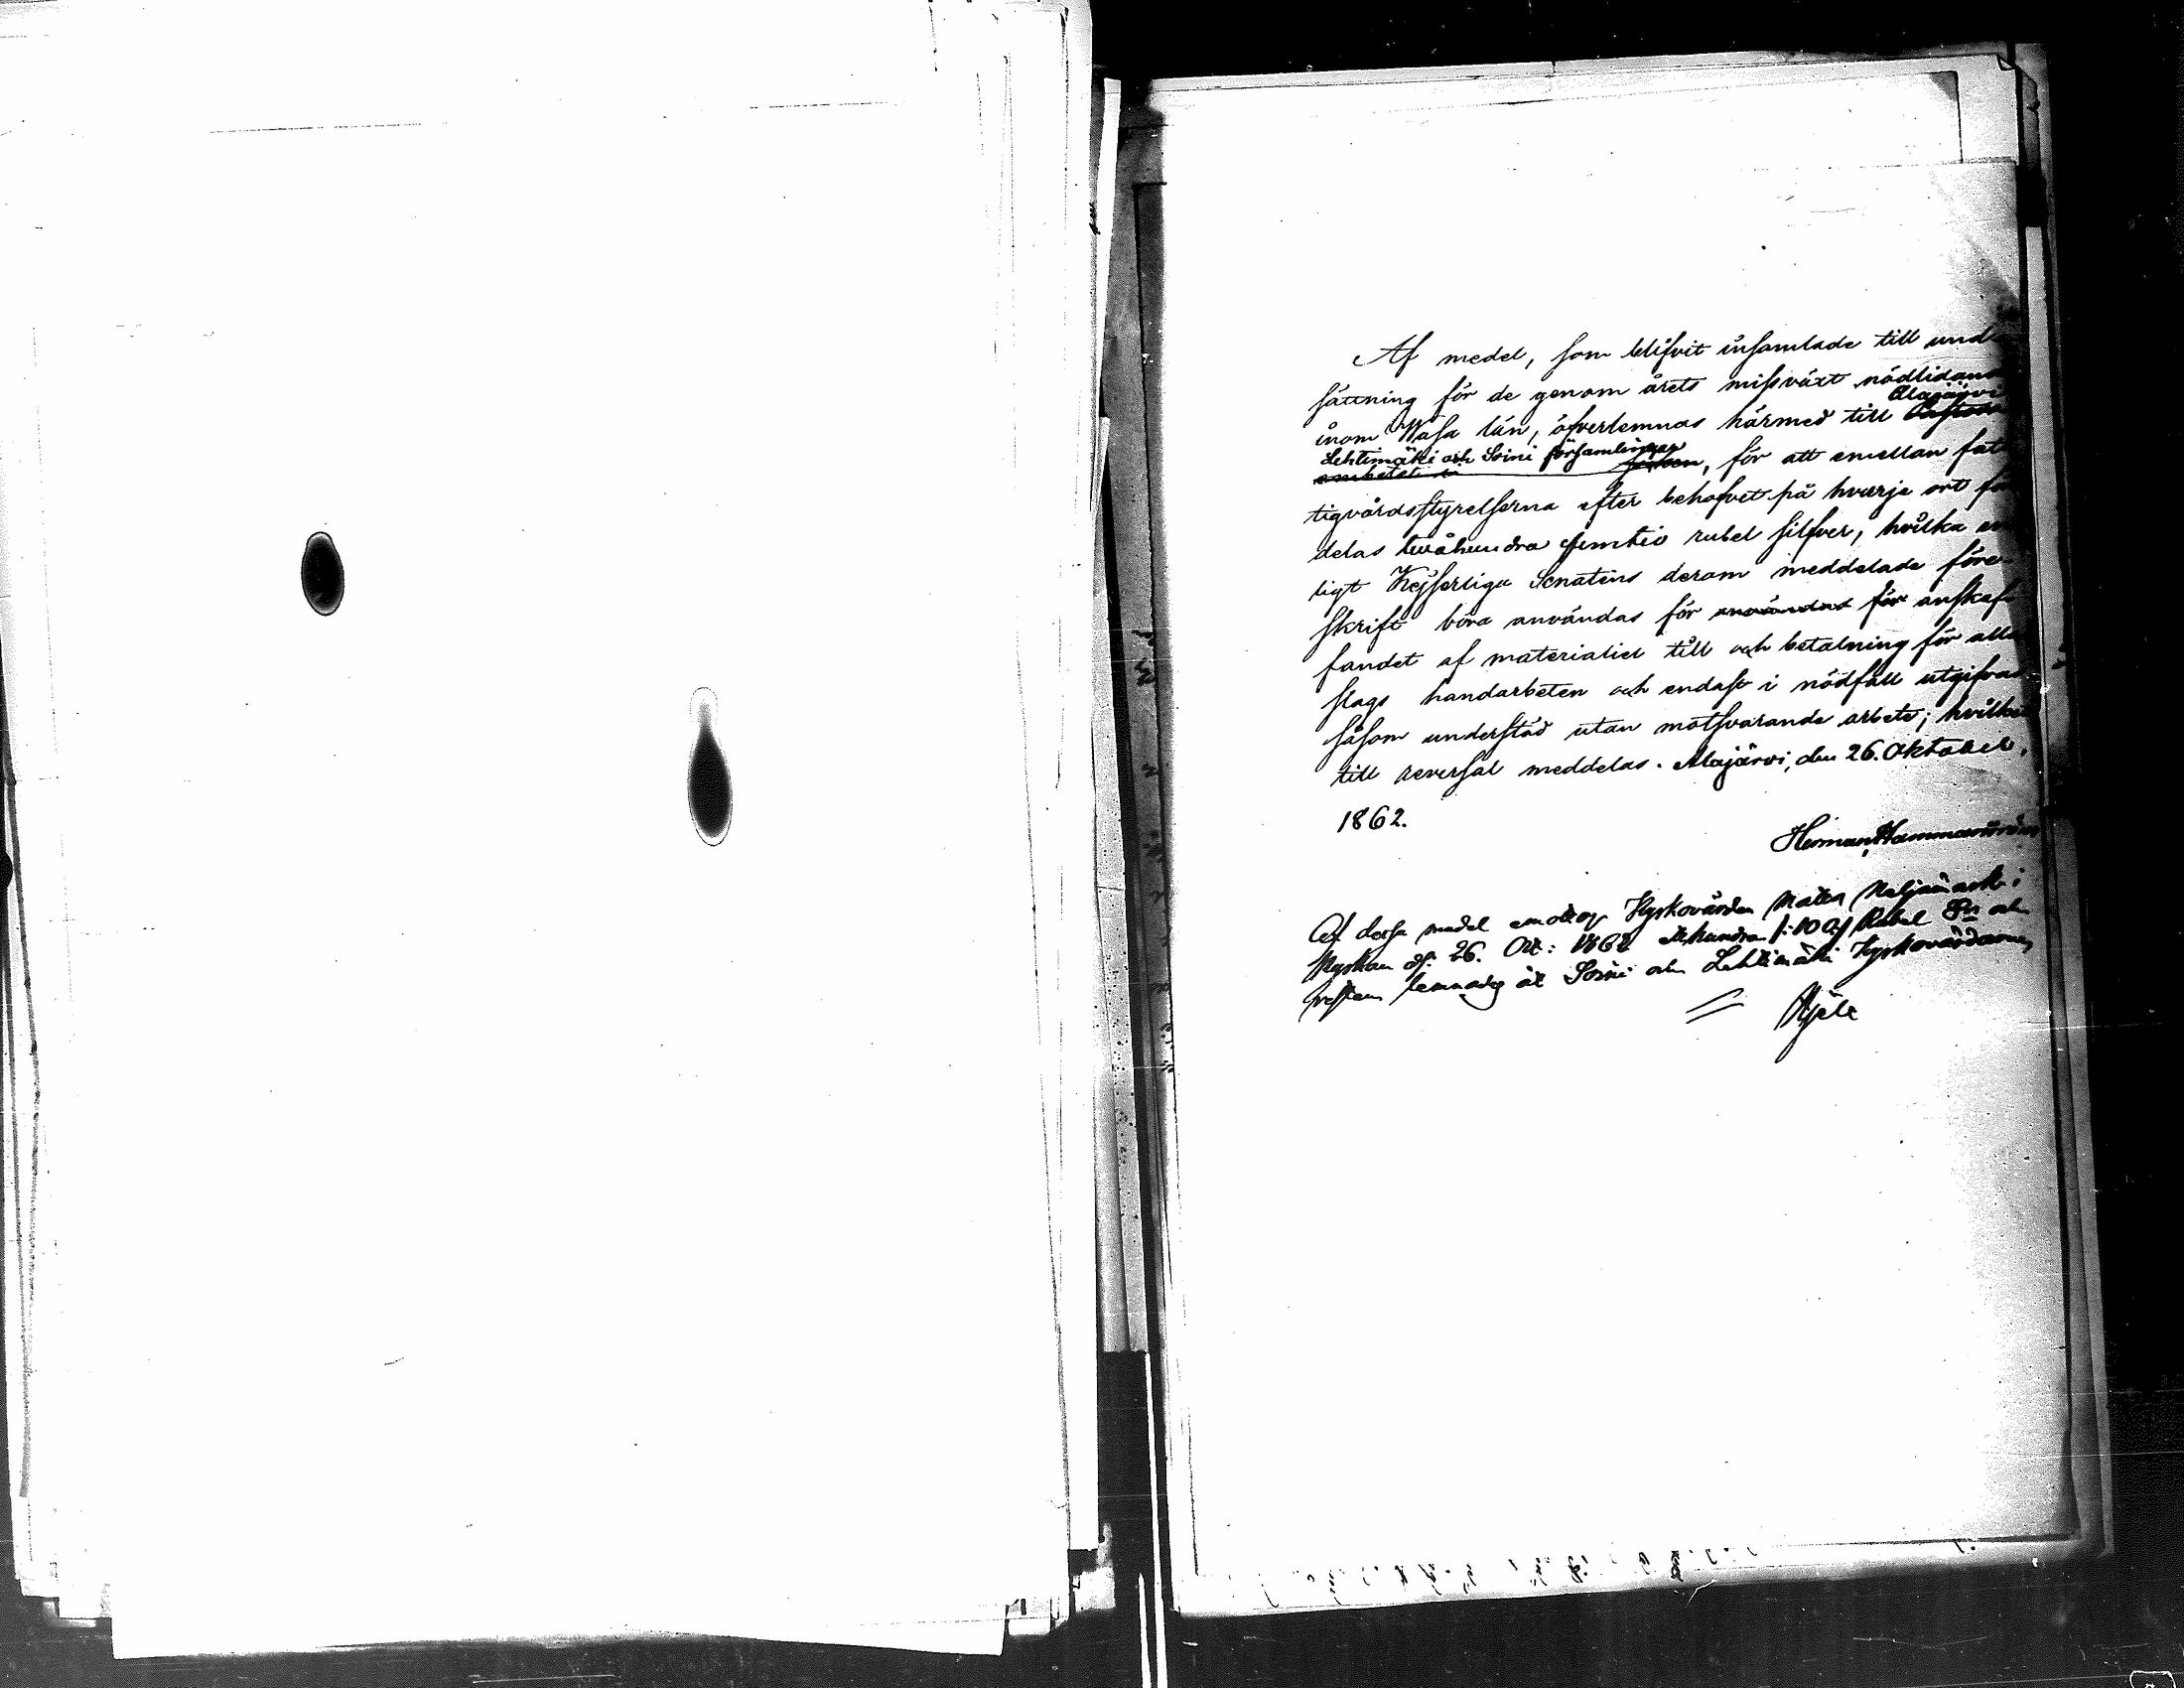 Af medel, som blifvit insamlade till und
sättning för de genom årets missväxt nödlidand
Alajärvi
inom Wasa län, öfverlemnas härmed till Pastors
Lehtimäki och Soini församlingar
embetet i , för att emellan fat
tigvårdsstyrelserna efter behofvet på hvarje ort för
delas tvåhundra femtio rubel silfver, hvilka en
ligt Kejserliga Senatens derom meddelade före-
skrift böra användas för användas för anskaf
fandet af materialier till och betalning för alla
slags handarbeten och endast i nödfall utgifvas
såsom understöd utan motsvarande arbete; hvilket
till reversal meddelas. Alajärvi, den 26. Oktober,
1862.
Herman Hammarström
Af dessa medel emottog Kyrkovärden Matts i
Kyrkan d. 26. Okt: 1862 etthundra /:100/ Rubel Sr och
resten lemnades åt Soini och Lehtimäki Kyrkovärdarne,